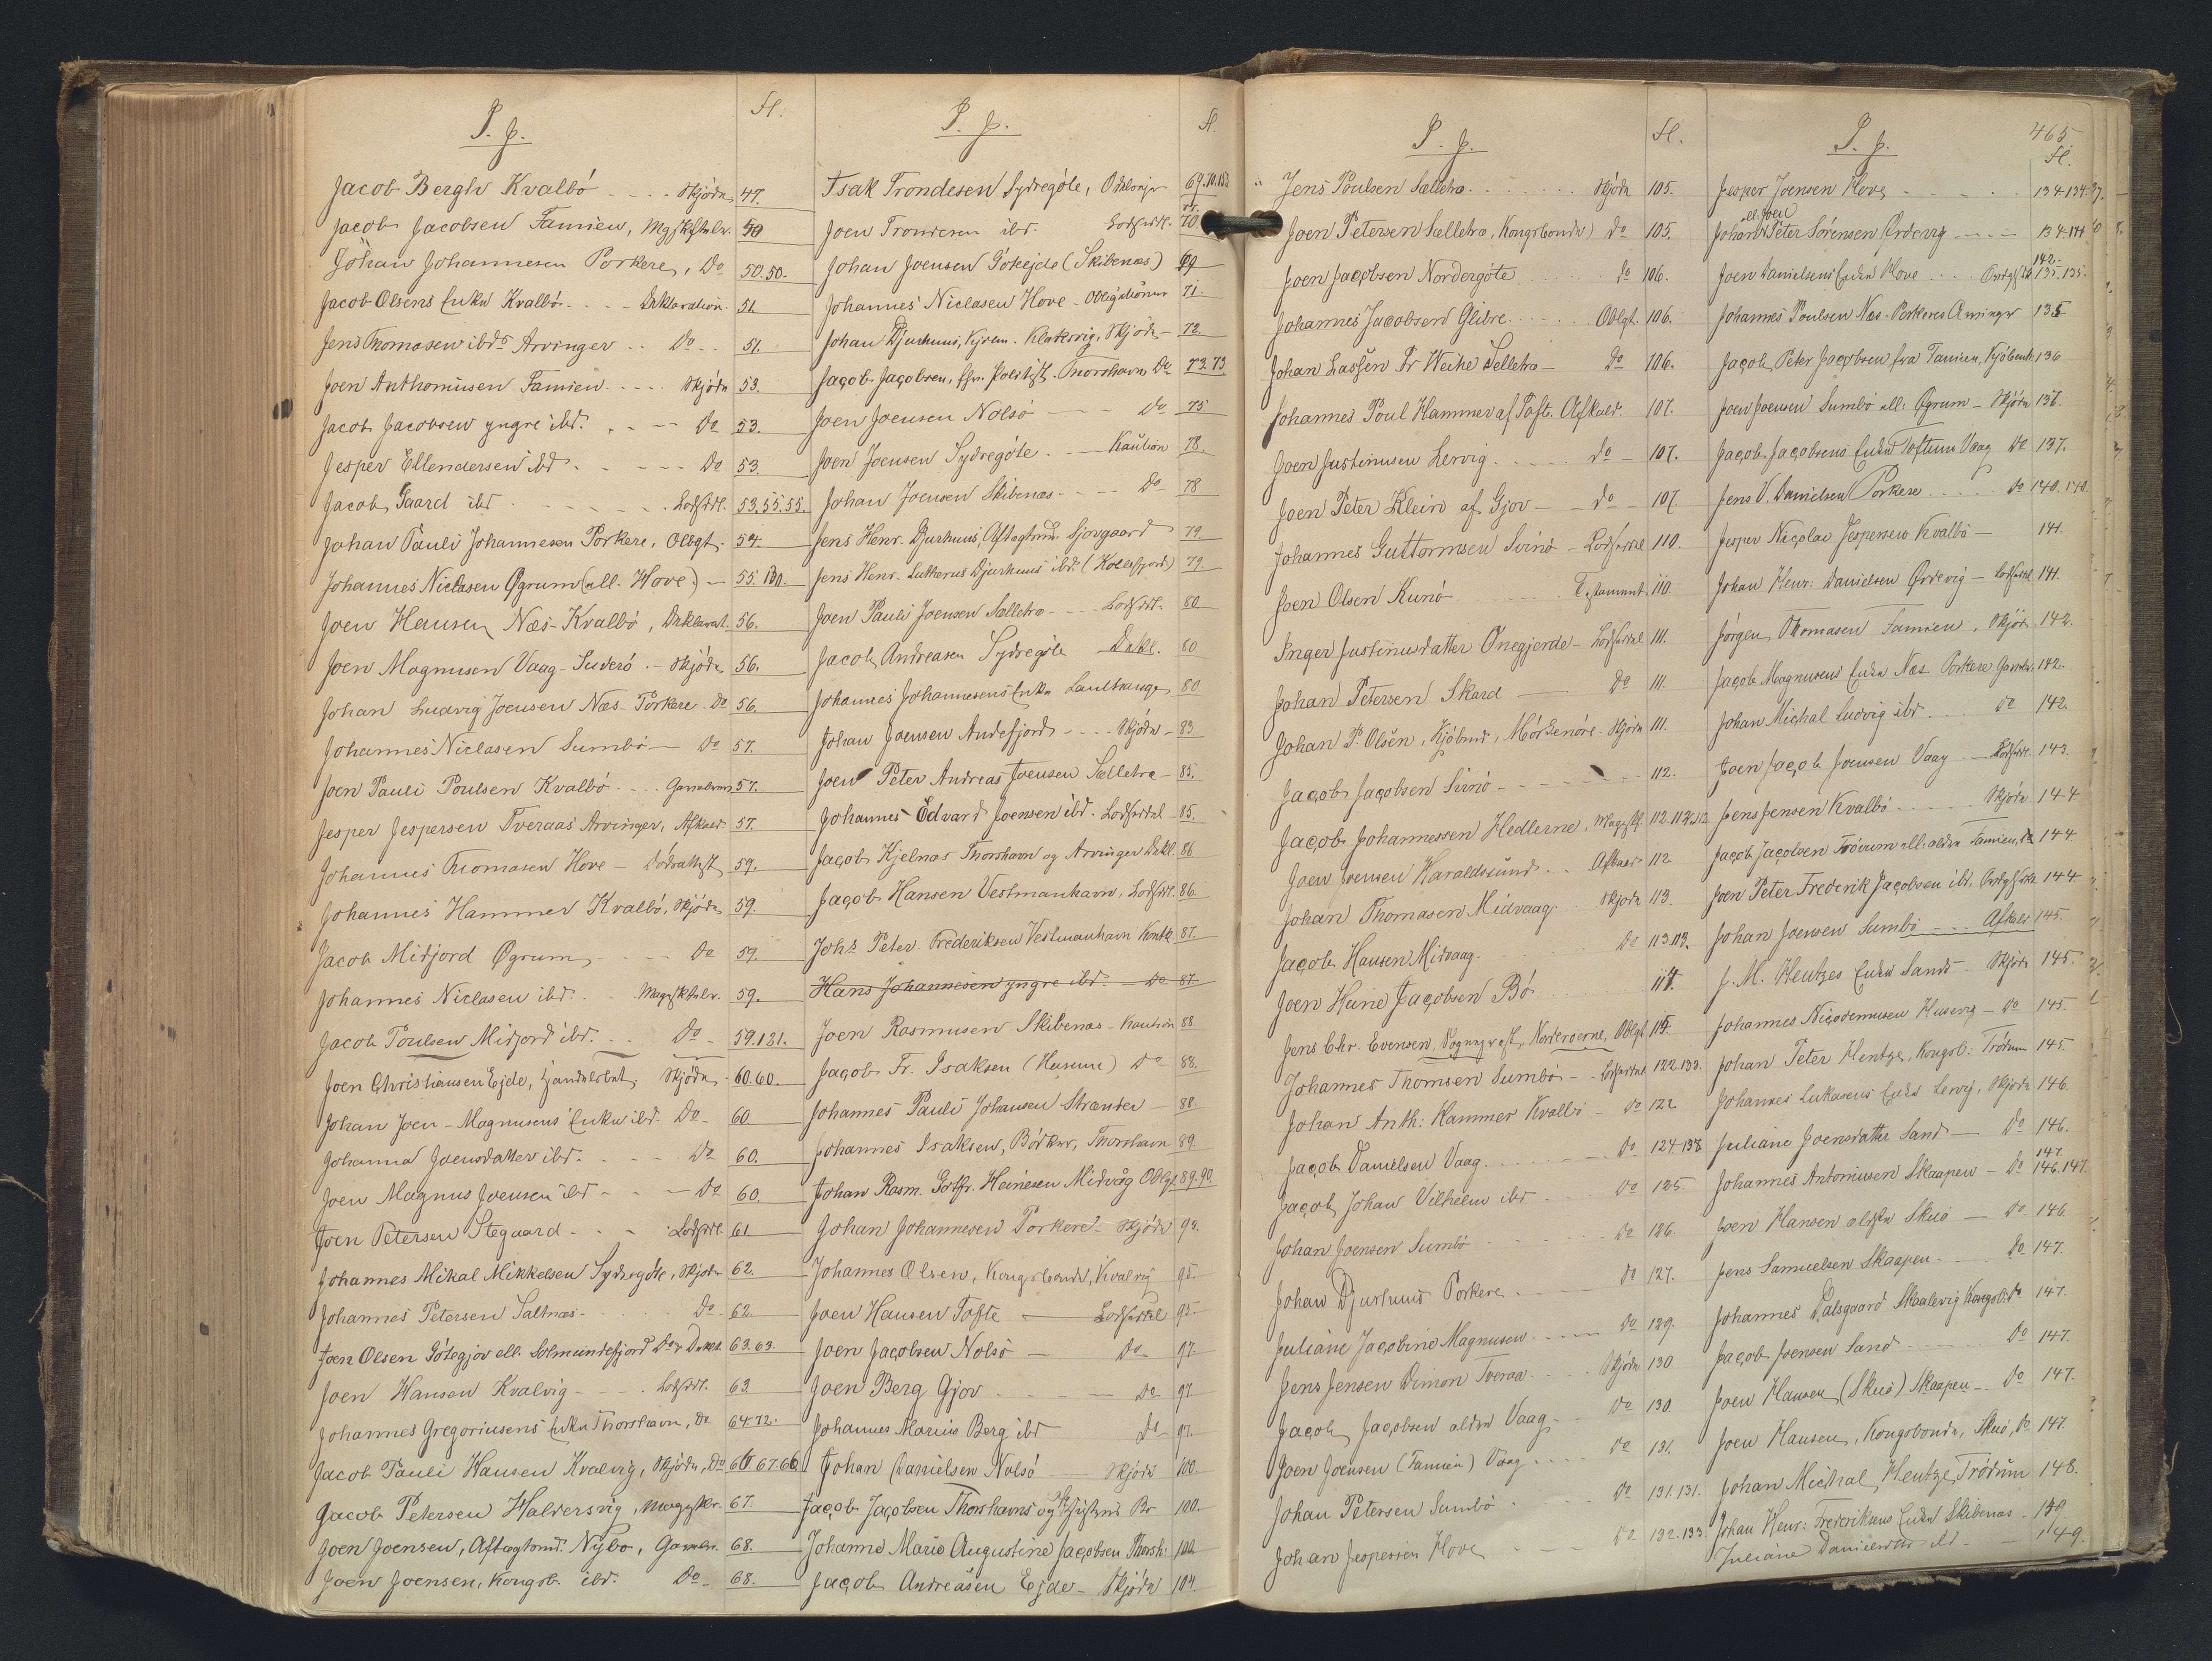 I. J.
Fl.
Jacob Bergh Kvalbö Skjöde 47.
Jacob Jacobsen Famien, Mgskftelv. 50
Johan Johannesen Porkere, Do 50.50.
Jacob Olsens Enke Kvalbö Deklaration 51
Jens Thomasen ibds Arvinger Do 51.
Joen Anthoniusen Famien Skjöde 53.
Jacob Jacobsen yngre ibd. Do 53.
Jesper Ellendersen ibd. Do 53.
Jacob Gaard ibd Lodseddl. 53.55.55.
Johan Pauli Johannesen Porkere, Oblgt. 54.
Johannes Niclasen Øgrum (ell. Hove) 55.100.
Joen Hansen Næs-Kvalbö, Deklarat. 56.
Joen Magnusen Vaag-Suderö Skjöde 56.
Johan Ludvig Joensen Næs-Porkere Do 56.
Johannes Niclasen Sumbö Do 57.
Joen Pauli Poulsen Kvalbö 57.
Jesper Jespersen Tveraas Arvinger, Afkald 57.
Johannes Thomasen Hove Dödsattest 59.
Johannes Hammer Kvalbö, Skjöde 59.
Jacob Midjord Øgrum Do 59.
Johannes Niclasen ibd. 59.
Jacob Poulsen Midjord ibd. Do 59.121.
Joen Christiansen Ejde, Skjöde 60.60.
Johan Joen-Magnusens Enke ibd. Do 60.
Johanna Joensdatter ibd. Do 60.
Joen Magnus Joensen ibd Do 60.
Joen Petersen Stegaard Lodseddl. 61.
Johannes Mikal Mikkelsen Sydregöte, Skjöde 62.
Johannes Petersen Saltnæs Do 62.
Joen Olsen Götegjov ell. Solmundefjord 63.63.
Joen Hansen Kvalvig Lodseddl. 63.
Johannes Gregoriusens Enke Thorshavn, Do 64.72.
Jacob Pauli Hansen Kvalvig, Skjöde, Do 67.66
Jacob Petersen Haldersvig, 67.
Joen Joensen, Aftægtsmd. Nybo, 68.
Joen Joensen, Kongsb. ibd. Do 68.
I. J.
Fl.
Isak Trondesen Sydregöte, 69.70.
Joen Trondesen ibd. Lodseddl. 70.
Johan Joensen Götejde (Skibenæs) 69
Johannes Niclasen Hove Obligationer 71.
Johan Djurhuus, Kjøbm. Klaksvig, Skjöde 72.
Jacob Jacobsen, fhv. Politibt. Thorshavn Do 73.73
Joen Joensen Nolsö Do 75
Joen Joensen Sydregöte Kaution 78.
Johan Joensen Skibenæs Do 78
Jens Henr. Djurhuus, Aftægtsmd. Sjovgaard 79
Jens Henr. Lutherus Djurhuus ibd. (Kollefjord) 79
Joen Pauli Joensen Selletræ Lodseddl. 80
Jacob Andreasen Sydregöte Dekl. 80
Johannes Johannesens Enke Lambhauge 80
Johan Joensen Andefjord Skjöde 83
Joen Peter Andreas Joensen Selletræ 85.
Johannes Edvard Joensen ibd. Lodseddel 85.
Jacob Kjelnæs Thorshavn og Arvinger Dekl. 86
Jacob Hansen Vestmanhavn, Lodseddl. 86
Johs Peter Frederiksen Vestmanhavn Kontr. 87.
Hans Johannesen yngre ibd. Do 87.
Joen Rasmusen Skibenæs Kaution 88
Jacob Fr. Isaksen (Husum) Do 88.
Johannes Pauli Johansen Strænder 88.
Johannes Isaksen, Bödker, Thorshavn 89
Johan Rasm. Gotfr. Heinesen Midvåg Oblgt. 89.90.
Johan Johannesen Porkere Skjöde 93.
Johannes Olsen, Kongsbonde, Kvalvig 95
Joen Hansen Tofte Lodseddel 95
Joen Jacobsen Nolsö Do 97.
Joen Berg Gjov Do 97.
Johannes Marius Berg ibd Do 97.
Johan Danielsen Nolsö Skjöde 100.
Jacob Jacobsen Thorshavns og 100
Johanne Marie Augustine Jacobsen Thorsh. 100
Jacob Andreasen Ejde Skjöde 104.
I. J.
Fl.
Jens Poulsen Selletræ Skjöde 105.
Joen Petersen Selletræ, Kongsbonde Do 105.
Joen Jacobsen Nordregöte Do 106.
Johannes Jacobsen Glibre Oblgt. 106.
Johan Lassen Pr Weihe Selletræ Do 106.
Johannes Poul Hammer af Toft. Afkald. 107.
Joen Justinusen Lervig Do 107.
Joen Peter Klein af Gjov Do 107.
Johannes Guttormsen Svinö Lodseddel 110.
Joen Olsen Kunö Testament 110.
Inger Justinusdatter Önegjerde Lodseddel 111.
Johan Petersen Skard Do 111.
Johan P. Olsen, Kjöbmd, Mörkenöre Skjöde 111.
Jacob Jacobsen Svinö 112.
Jacob Johannessen Hedlerne, 112.112.
Joen Joensen Haraldssund Afkald 112.
Johan Thomasen Midvaag Skjöde 113.
Jacob Hansen Midvaag Do 113.113.
Joen Heine Jacobsen Bö 114.
Jens Chr. Evensen, Sognepræst, Norderöerne, Oblgt 115.
Johannes Thomsen Sumbö Lodseddel 122.133.
Johan Anth: Hammer Kvalbö Do 122
Jacob Danielsen Vaag Do 124.138
Jacob Johan Vilhelm ibd Do 125.
Johan Joensen Sumbö Do 126.
Johan Djurhuus Porkere Do 127.
Juliane Jacobine Magnusen Do 129.
Jens Jensen Dimon Tveraa Skjöde 130.
Jacob Jacobsen ældre Vaag Do 130.
Joen Joensen (Famien) Vaag Do 131.
Johan Petersen Sumbö Do 131.131.
Johan Jespersen Hove Do 132.133.
I. J.
465
Fl.
Jesper Joensen Hove 134.134.37.
ell. Joen
Johan Peter Sörensen Ørdevig 134.141
142.
Joen Danielsens Enke Hove 135.135.
Johannes Poulsen Næs-Porkeres Arvinger 135
Jacob Peter Jacobsen fra Famien, Kjöbenh. 136
Joen Joensen Sumbö ell: Øgrum Skjöde 137.
Jacob Jacobsens Enke Toftum Vaag Do 137.
Jens V. Danielsen Porkere Do 140.140.
Jesper Nicolai Jespersen Kvalbö 141.
Johan Henr: Danielsen Ørdevig Lodseddel 141.
Jörgen Thomasen Famien, Skjöde 142.
Jacob Magnusens Enke Næs Porkere 142.
Johan Michal Ludvig ibd Do 142.
Joen Jacob Joensen Vaag Lodseddl. 143.
Jens Jensen Kvalbö Skjöde 144
Jacob Jacobsen Fröerum ell. ældre Famien, Do 144
Joen Peter Frederik Jacobsen ibd. 144
Johan Joensen Sumbö Afkld 145.
J. M. Hentzes Enke Sand Skjöde 145.
Johannes Nicodemusen Husevig Do 145.
Johan Peter Hentze, Kongsb: Trödum 145.
Johannes Lukasens Enke Lervig, Skjöde 146.
Juliane Joensdatter Sand Do 146.
147.
Johannes Antoniusen Skaapen Do 146.147.
Joen Hansen ældste Skuö Do 146.
Jens Samuelsen Skaapen Do 147.
Johannes Dalsgaard Skaalevig Kongsb. Do 147.
Jacob Joensen Sand Do 147.
Joen Hansen (Skuö) Skaapen Do 147.
Joen Hansen, Kongsbonde, Skuö, Do 147.
Johan Michal Hentze, Trödum 148.
Johan Henr: Frederiksens Enke Skibenæs 149.
Juliane Danielsdtr ibd 149.